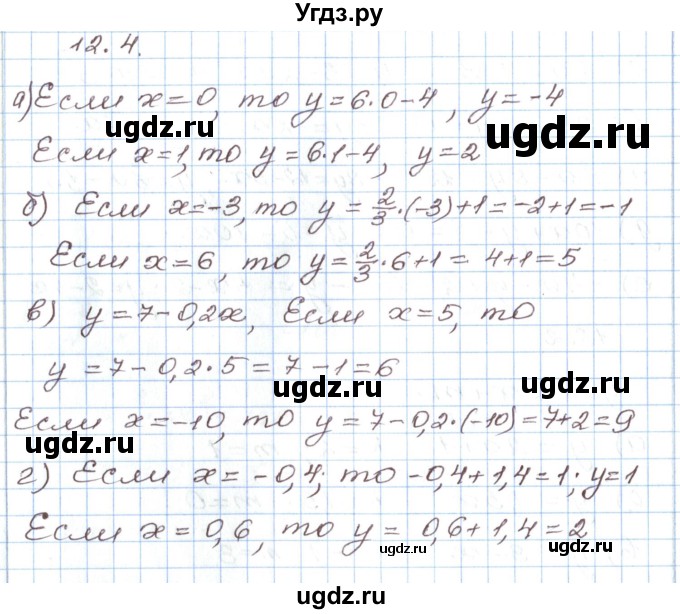 Угдз.ру
12.4.
а) Если x=0, то y=6·0-4, y=-4
ugdz.ru
ugdz.ru
Если x=1, то y=6·1-4, y=2
б) Если x=-3, то y=2/3·(-3)+1=-2+1=-1
Если x=6, то y=2/3·6+1=4+1=5
в) y=7-0,2x, Если x=5, то
ugdz.ru
ugdz.ru
y=7-0,2·5=7-1=6
Если x=-10, то y=7-0,2·(-10)=7+2=9
ugdz.ru
г) Если x=-0,4; то -0,4+1,4=1; y=1
Если x=0,6, то y=0,6+1,4=2
ugdz.ru
ugdz.ru